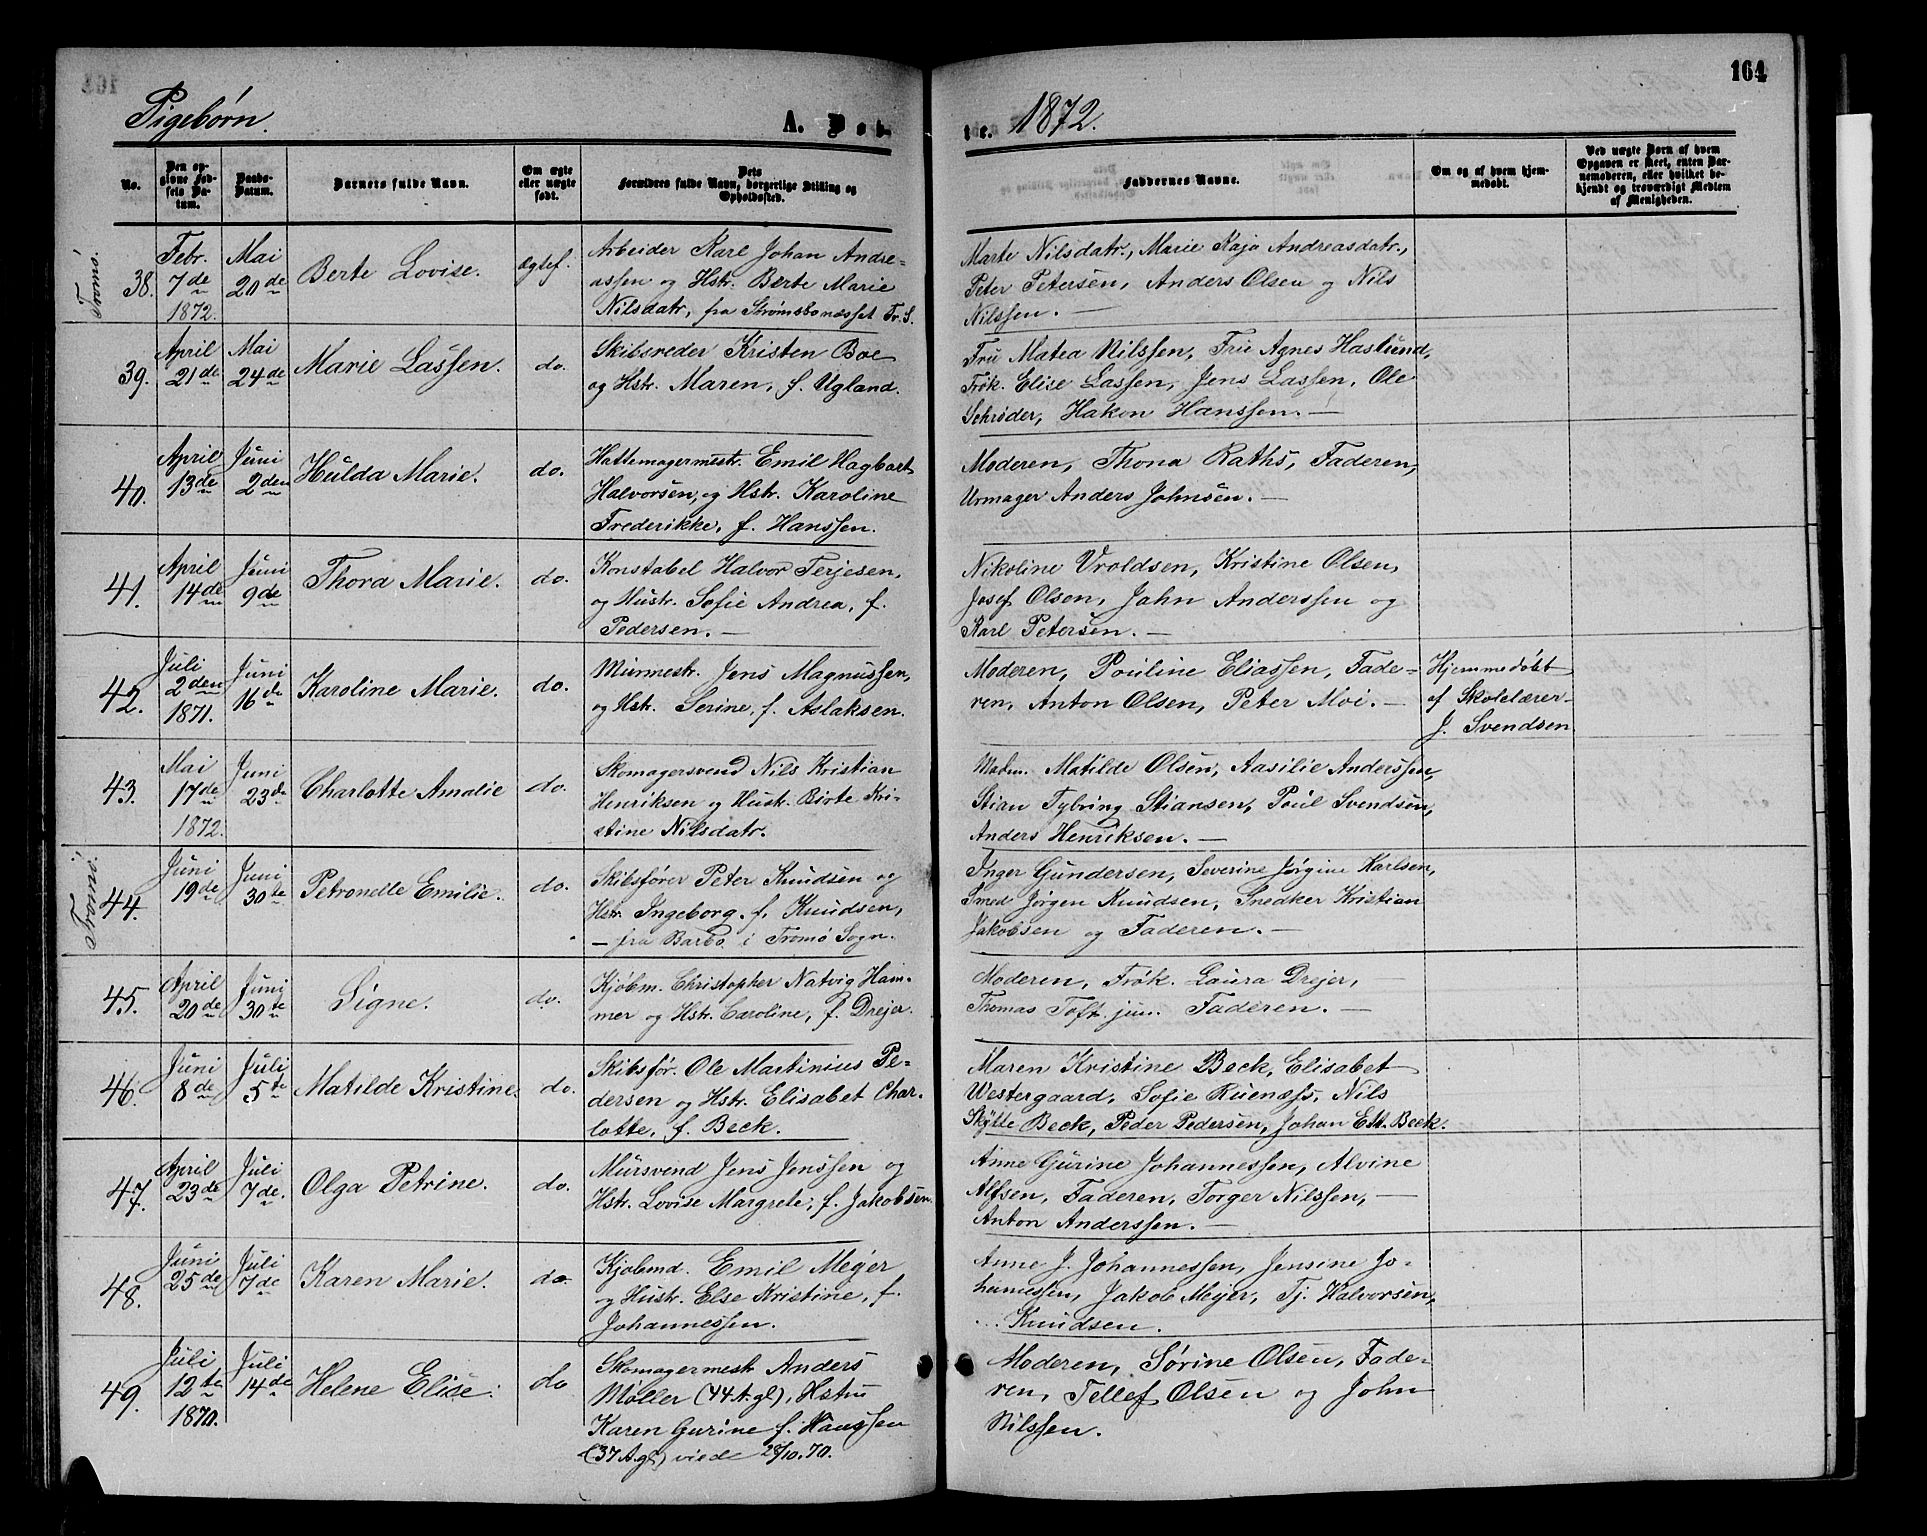 164
Pigebørn. A. Døb- te. 1872.
No.
Den opgivne Fødsels Datum.
Daabs-Datum.
Barnets fulde Navn.
Om ægte eller uægte født.
Dets Forældres fulde Navn, borgerlige Stilling og Opholdssted.
Faddernes Navne.
Om og af hvem hjemmedøbt.
Ved uægte Børn af hvem Opgaven er skeet, enten Barnemoderen, eller hvilket bekjendt og troværdigt Medlem af Menigheden.
Tromø.
38. Febr. 7de 1872. Mai 20de Berte Lovise. Ægtef.
Arbeider Karl Johan Andre-
assen og Hstr. Berte Marie
Nilsdatr, fra Strømsbonæsset Tr. S.
Marte Nilsdatr., Marie Kaja Andreasdatr.,
Peter Petersen, Anders Olsen og Nils
Nilssen. —
39. April 21de Mai 24de Marie Lassen. do.
Skibsreder Kristen Boe
og Hstr. Maren, f. Ugland.
Fru Matea Nilssen, Fru Agnes Haslund,
Frøk. Elise Lassen, Jens Lassen, Ole
Schrøder, Hakon Hanssen. —
40. April 13de Juni 2den Hulda Marie. do.
Hattemagermestr. Emil Hagbart
Halvorsen, og Hstr. Karoline
Frederikke, f. Hanssen.
Moderen, Thona Raths, Faderen,
Urmager Anders Johnsen. —
41. April 14de Juni 9de Thora Marie. do.
Konstabel Halvor Terjesen,
og Hustr. Sofie Andrea, f.
Pedersen. —
Nikoline Vroldsen, Kristine Olsen,
Josef Olsen, John Anderssen og
Karl Petersen. —
42. Juli 2den 1871. Juni 16de Karoline Marie. do.
Murmestr. Jens Magnussen,
og Hstr. Serine, f. Aslaksen.
Moderen, Pouline Eliassen, Fade-
ren, Anton Olsen, Peter Moi. —
Hjemmedøbt
af Skolelærer
J. Svendsen
43. Mai 17de 1872. Juni 23de Charlotte Amalie do.
Skomagersvend Nils Kristian
Henriksen og Hustr. Birte Kri-
stine Nilsdatr.
Madm. Matilde Olsen, Aasilie Anderssen,
Stian Tybring Stiansen, Poul Svendsen,
Anders Henriksen. —
Tromø.
44. Juni 19de Juni 30te Petronelle Emilie. do.
Skibsfører Peter Knudsen og
Hstr. Ingeborg, f. Knudsen,
— fra Barbo i Tromø Sogn.
Inger Gundersen, Severine Jørgine Karlsen,
Smed Jørgen Knudsen, Snedker Kristian
Jakobsen og Faderen. —
45. April 20de Juni 30te Signe. do.
Kjøbm. Christopher Natvig Ham-
mer og Hstr. Caroline, f. Drejer.
Moderen, Frøk. Laura Drejer,
Thomas Toft jun. Faderen. —
46. Juni 8de Juli 5te Matilde Kristine. do.
Skibsfør. Ole Martinius Pe-
dersen og Hstr. Elisabet Char-
lotte, f. Beck.
Maren Kristine Beck, Elisabet
Westergaard, Sofie Ruenæss, Nils
Skytte Beck, Peder Pedersen, Johan Ett. Beck.
47. April 23de Juli 7de. Olga Petrine. do.
Mursvend Jens Jenssen og
Hstr. Lovise Margrete, f. Jakobsen.
Anne Gurine Johannessen, Alvine
Alfsen, Faderen, Torger Nilssen, —
Anton Anderssen. —
48. Juni 25de Juli 7de Karen Marie. do.
Kjøbmd. Emil Meyer
og Hustr. Else Kristine, f.
Johannessen.
Anne J. Johannessen, Jensine Jo-
hanessen, Jakob Mejer, Tj. Halvorsen,
... Knudsen.
49. Juli 12te 1870. Juli 14de Helene Elise. do
Skomagermest Anders
Møller (44 A. gl), Hstru
Karen Gurine f. Hanssen
(37 A. gl) viede 28/10. 70.
Moderen, Sørine Olsen, Fade-
ren, Tellef Olsen og John
Nilssen.